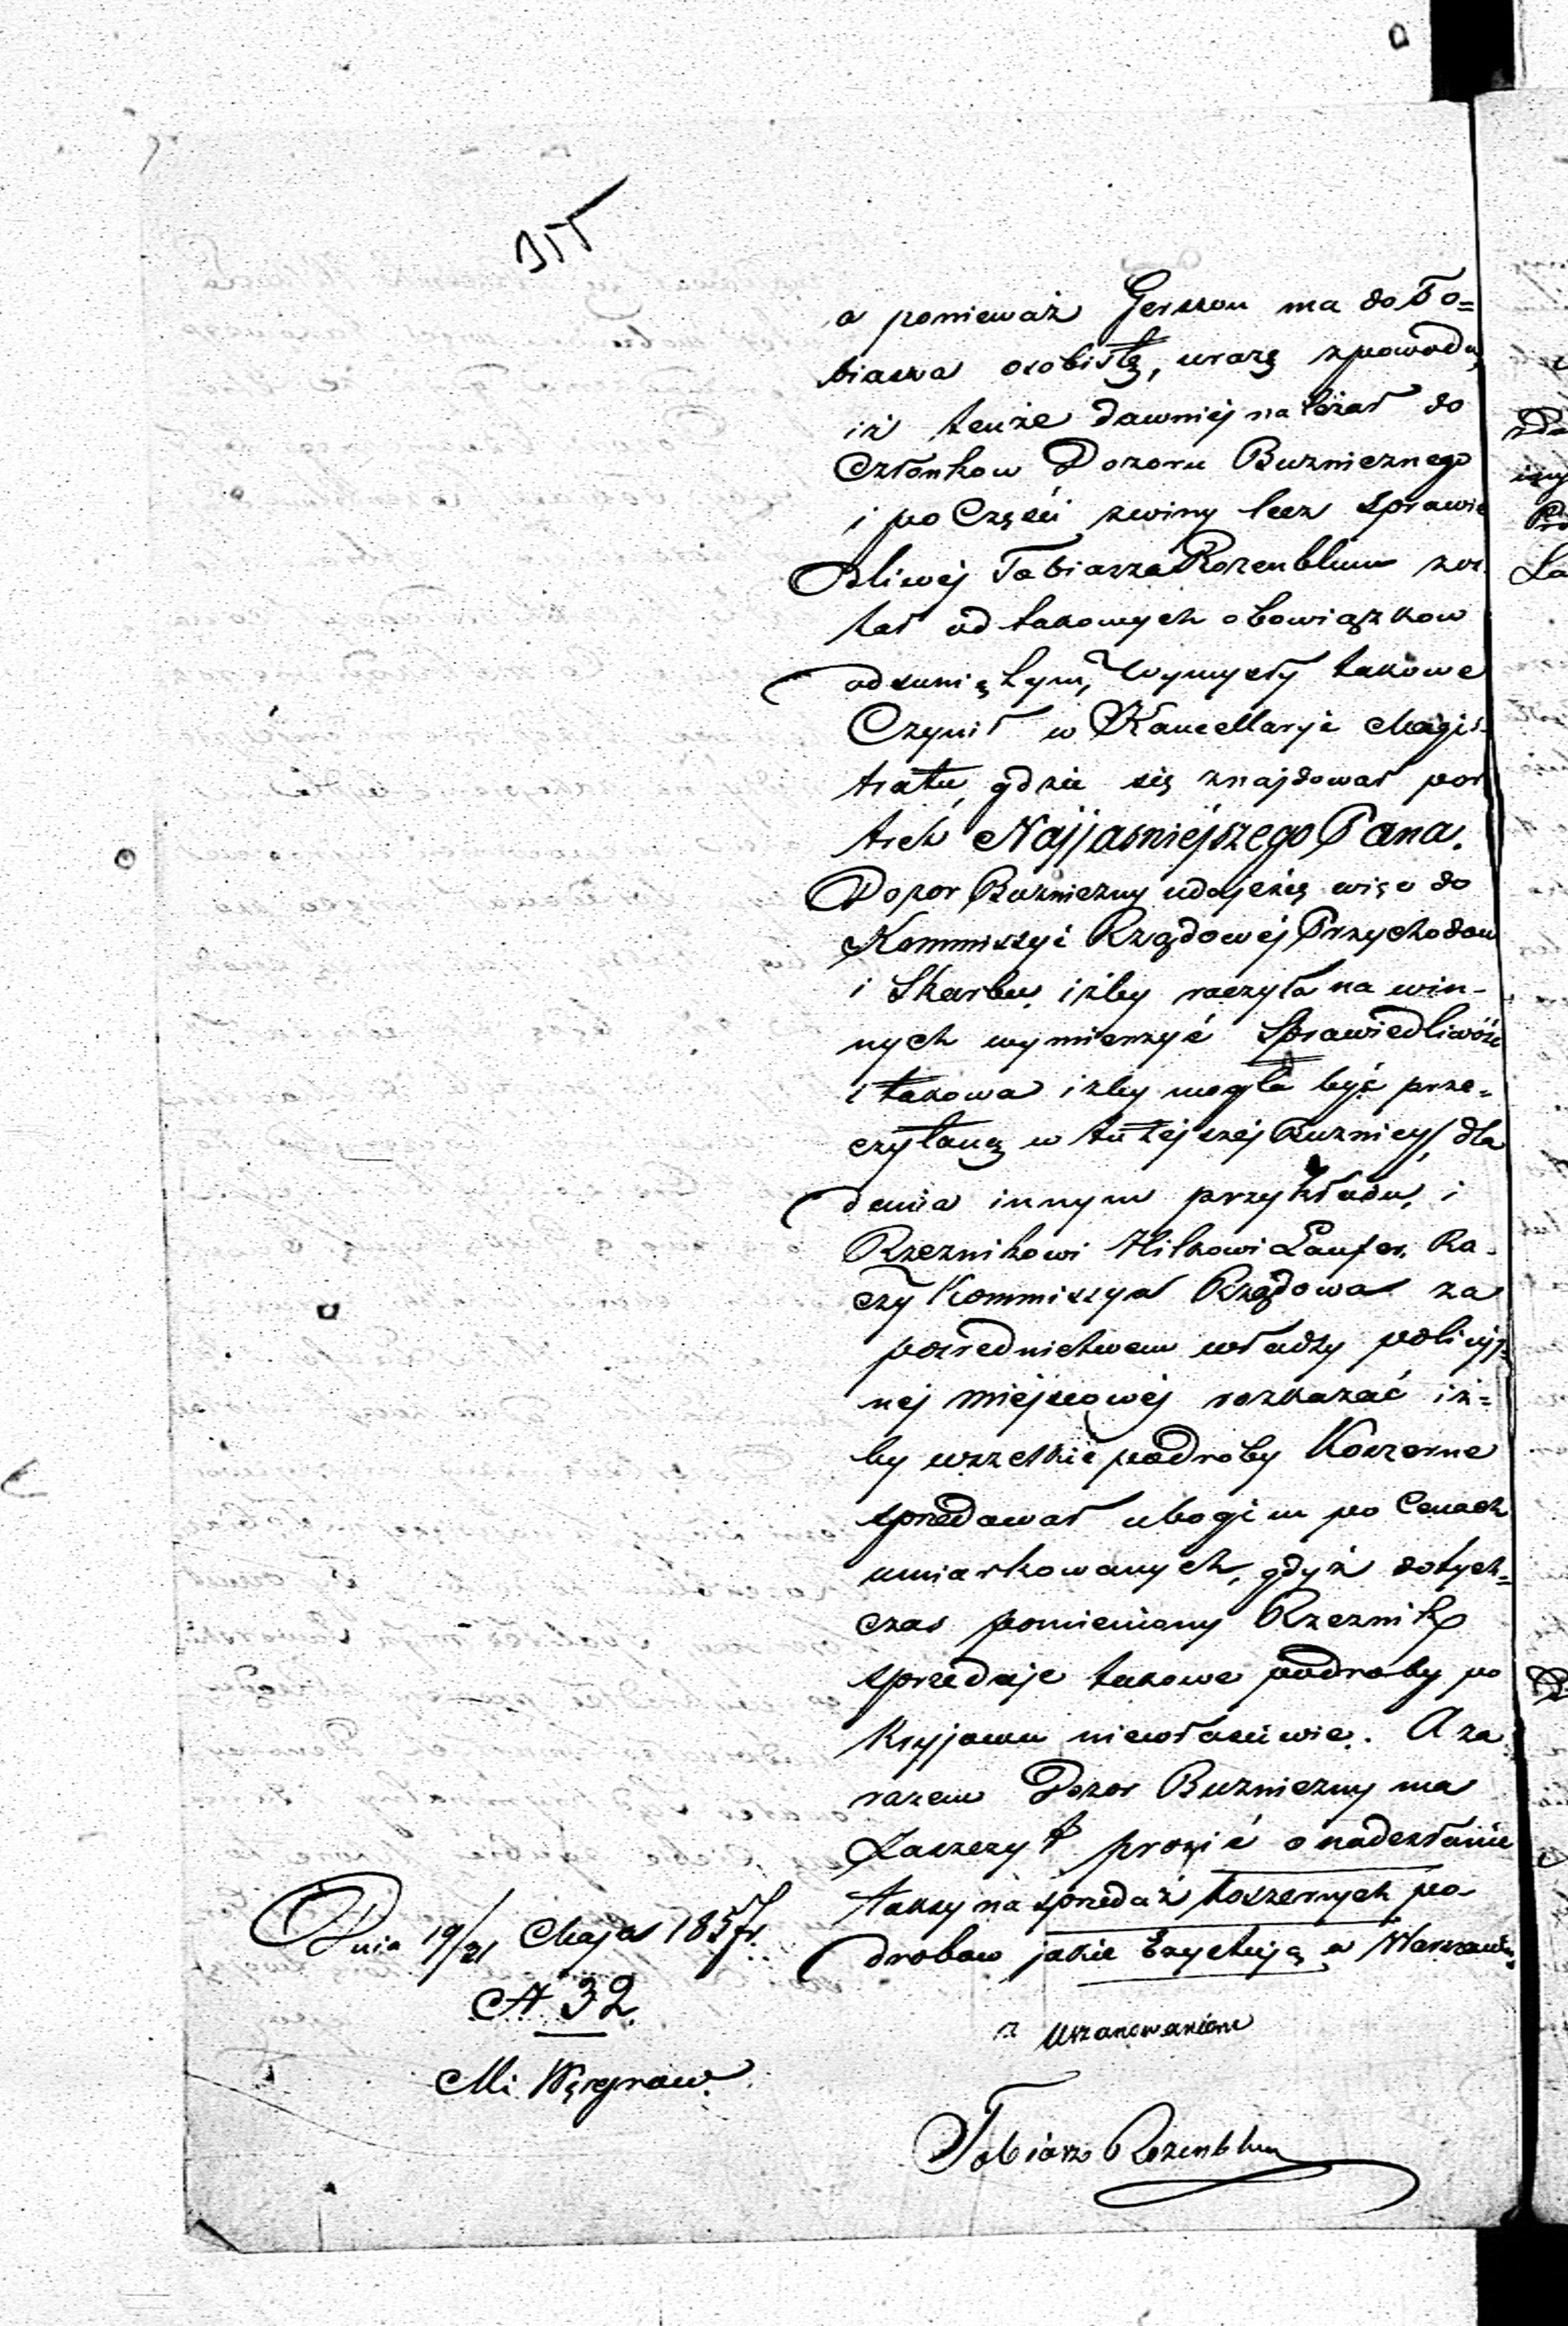 a ponieważ Gerszon ma do To=
biasza osobistą, urazę z powodu,
iż tenże dawniej należał do
Członkow Dozoru Buznicznego
i po Części zwiny lecz Sprawie
dliwéj Tobiasza Rozenblum zos
tał od takowych obowiązkow
odsuniętym, Wymysły takowe
Czynił w Kancellaryi Magis-
tratu, gdzie się znajdował por
tret Najjasniejszego Pana.
Dozor Buzniczny udaje się więc do
Kommissyi Rządowéj Przychodow
i Skarbu, iżby raczyła na win-
nych wymierzyć Sprawiedliwość
i takowa iżby mogła być prze-
czytaną w tutéjszéj Buznicy, dla
dania innym przykładu, i
Rzeznikowi Hilkowi Laufer. Ra-
czy Kommissya Rządowa za
posrednictwem władzy policyj-
nej miejscowéj rozkazać iż=
by wszelkie podroby Koszerne
sprzedawał ubogim po Cenach
umiarkowanych, gdyż dotych=
czas pomieniony Rzeznik
sprzedaje takowe podroby po
kryjomu niewłasciwie. A za
razem Dozor Buzniczny ma
Zaszczyt prosić o nadesłanie
taksy na sprzedaż koszernych po-
drobow jakie Exystują w Warszawie.
z Uszanowaniem
Tobiasz Rozenblum
Dnia 19/31 Maja 1857 r.
N 32.
Mi. Węgrow.